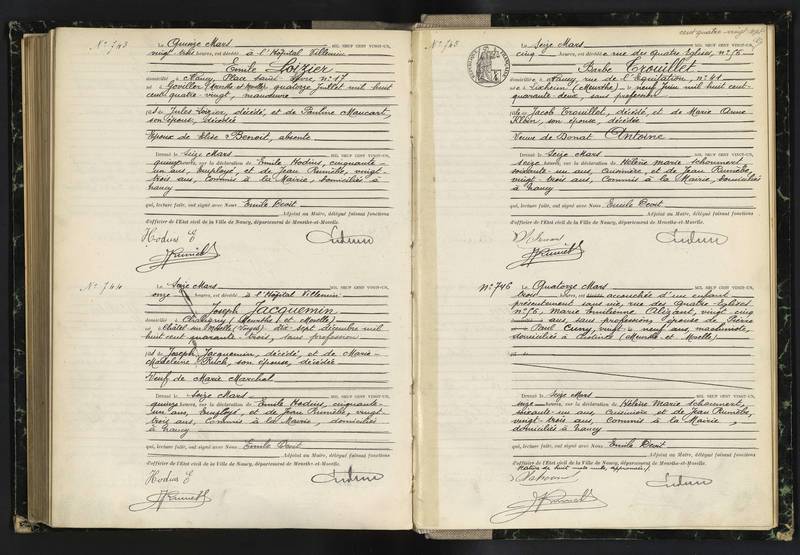 N° 743
Le Quinze Mars MIL NEUF CENT VINGT-UN,
vingt trois heures, est décédé à l'Hôpital Villemin
Emile Loizier
domicilié à Nancy, Place Saint-Epvre, n° 17
né à Goviller (Meurthe et Moselle) quatorze Juillet mil huit
cent quatre-vingt, manœuvre
fils de Jules Loizier, décédé, et de Pauline Maucart,
son épouse, décédée
Epoux de Elise Benoit, absente.
Dressé le Seize Mars MIL NEUF CENT VINGT-UN,
quinze heures, sur la déclaration de Emile Hodius, cinquante-
un ans, Employé, et de Jean Ruméebe, vingt-
trois ans, Commis à la Mairie, domiciliés à
Nancy
qui, lecture faite, ont signé avec Nous Emile Devit
Adjoint au Maire, délégué faisant fonctions
d'officier de l'Etat civil de la Ville de Nancy, département de Meurthe-et-Moselle.
Hodius E
N° 744
Le Seize Mars MIL NEUF CENT VINGT-UN,
onze heures, est décédé à l'Hôpital Villemin
Joseph Jacquemin
domicilié à Chaligny (Meurthe et Moselle)
né à Châtel sur Moselle (Vosges) dix-sept décembre mil
huit cent quarante-trois, sans profession
fils de Joseph Jacquemin, décédé, et de Marie-
Madeleine Ruch, son épouse, décédée
Veuf de Marie Marchal
Dressé le Seize Mars MIL NEUF CENT VINGT-UN,
quinze heures, sur la déclaration de Emile Hodius, cinquante-
un ans, Employé, et de Jean Ruméebe, vingt-
trois ans, Commis à la Mairie, domiciliés
à Nancy
qui, lecture faite, ont signé avec Nous Emile Devit
Adjoint au Maire, délégué faisant fonctions
d'officier de l'Etat civil de la Ville de Nancy, département de Meurthe-et-Moselle.
Hodius E
cent quatre-vingt-sept
N° 745
Le Seize Mars MIL NEUF CENT VINGT-UN,
cinq heures, est décédée rue des Quatre Eglises, n° 75
Barbe Trouillet
domiciliée à Nancy, rue de l'Equitation, n° 41
née à Lixheim (Meurthe) le neuf Juin mil huit cent-
quarante-deux, sans profession
fille de Jacob Trouillet, décédé, et de Marie Anne
Klein, son épouse, décédée
Veuve de Donat Antoine
Dressé le Seize Mars MIL NEUF CENT VINGT-UN,
seize heures, sur la déclaration de Hélène Marie
soixante-un ans, Cuisinière, et de Jean Ruméebe,
vingt-trois ans, Commis à la Mairie, domiciliés
à Nancy
qui, lecture faite, ont signé avec Nous Emile Devit
Adjoint au Maire, délégué faisant fonctions
d'officier de l'Etat civil de la Ville de Nancy, département de Meurthe-et-Moselle.
N° 746
Le Quatorze Mars MIL NEUF CENT VINGT-UN,
trois heures, est accouchée d'un enfant
présentement sans vie, rue des Quatre Eglises
n° 75, Marie Emilienne Alizant, vingt cinq
ans, sans profession, épouse de Pierre
Paul Cuny, vingt-neuf ans, machiniste,
domiciliés à (Meurthe et Moselle)
Dressé le Seize Mars MIL NEUF CENT VINGT-UN,
seize heures, sur la déclaration de Hélène Marie
soixante-un ans, Cuisinière et de Jean Ruméebe,
vingt-trois ans, Commis à la Mairie,
domiciliés à Nancy
qui, lecture faite, ont signé avec Nous Emile Devit
Adjoint au Maire, délégué faisant fonctions
d'officier de l'Etat civil de la Ville de Nancy, département de Meurthe-et-Moselle.